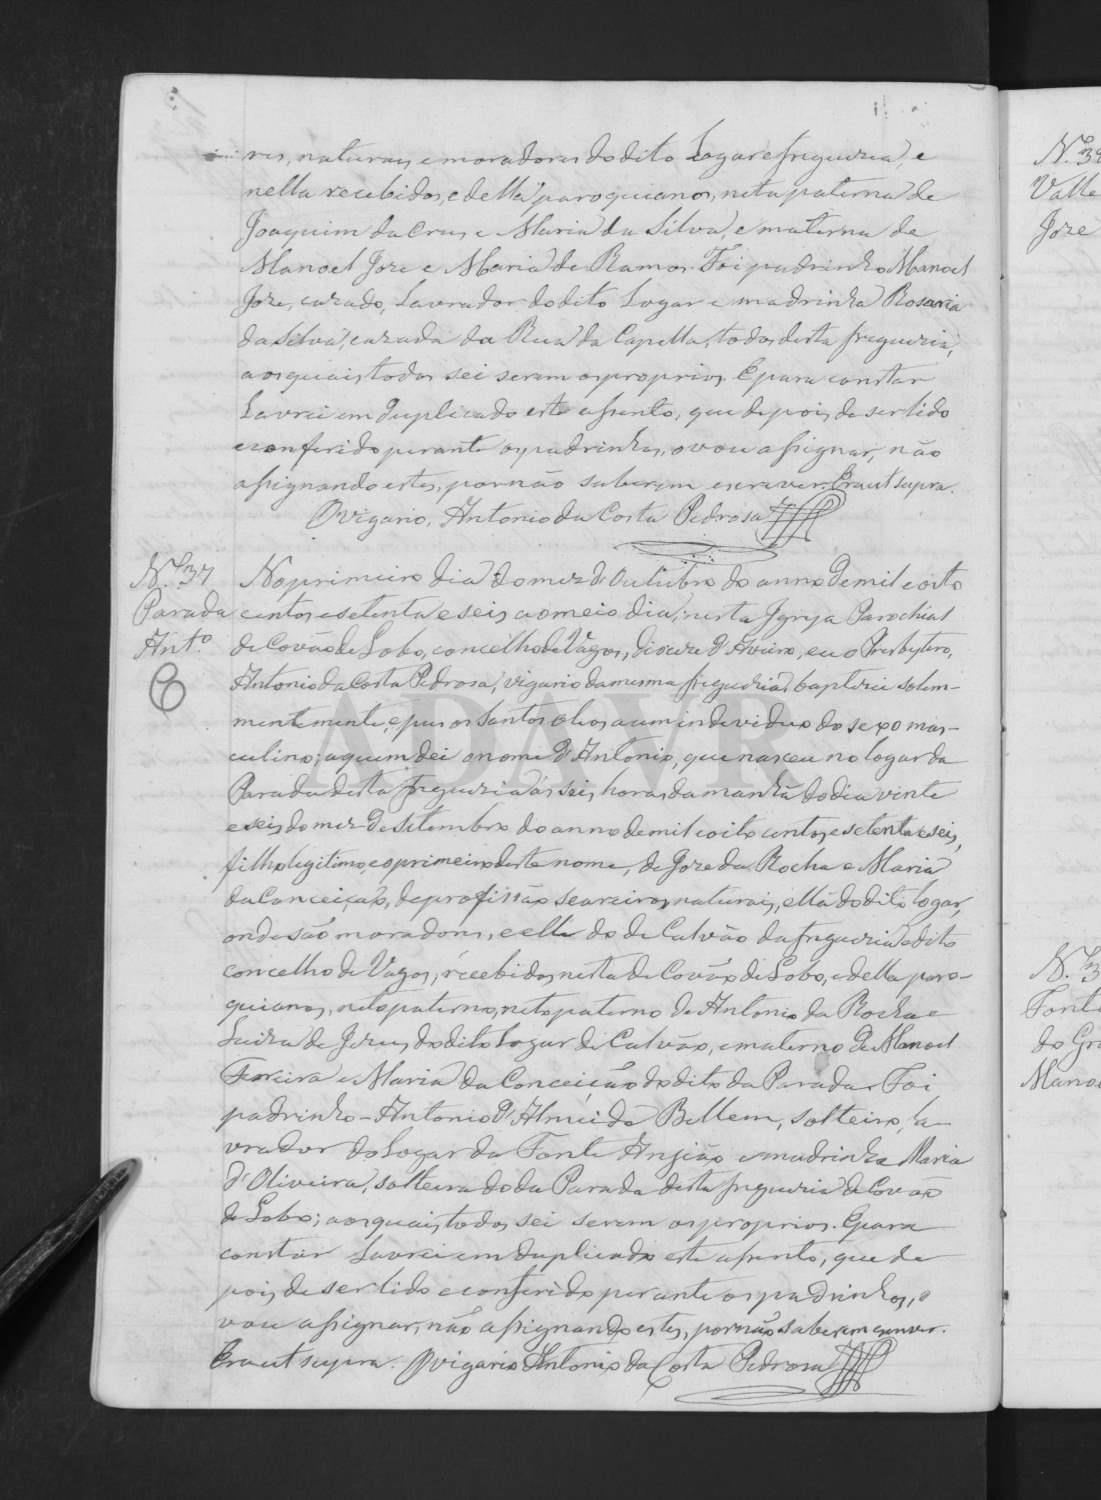 res, naturaes, e moradores do dito Logar e freguezia, e
nella recebidos, e della paroquianos, neta paterna de
Joaquim da Crus, e Maria da Silva, e materna de
Manoel Joze e Maria de Ramos. Foi padrinho Manoel
Joze, cazado, Lavrador do dito Logar e madrinha Rosaria
da Silva, cazada da Rua da Capella, todos desta freguezia,
aos quais todos sei serem os proprios. E para constar
Lavrei em duplicado este assento, que depois de ser lido
e conferido perante os padrinhos, o vou assignar, não
assignando estes, por não saberem escrever. Era ut supra.
O vigario, Antonio da Costa Pedrosa
Nº 37
Parada
Antº
No primeiro dia do mez d'Outubro do anno de mil e oito
centos e setenta e seis ao meio dia, nesta Igreja Parochial
de Covão de Lobo, concelho de Vagos, diocese d'Aveiro, eu o Presbytero,
Antonio da Costa Pedrosa, vigario da mesma freguezia, baptizei solem-
mente mente, e pus os santos oleos a um individuo do sexo mas-
culino; a quem dei o nome d'Antonio, que nasceu no logar da
Parada desta freguezia ás seis horas da manhã do dia vinte
e seis do mez de Setembro do anno de mil e oito centos e setenta e seis,
filho legitimo, e o primeiro deste nome, de Joze da Rocha e Maria
da Conceição, de profissão seareiros, naturais, ella do dito logar,
onde são moradores, e elle do de Calvão da freguezia e dito
concelho de Vagos, recebidos nesta de Covão de Lobo, e della paro-
quianos, neto paterno, neto paterno de Antonio da Rocha e
Luiza de Jezus, do dito Logar de Calvão, e materno de Manoel
Ferreira e Maria da Conceição do dito da Parada. Foi
padrinho - Antonio d'Almeida Bellem, solteiro, la-
vrador do Logar da Fonte Angião e madrinha Maria
d'Oliveira, solteira do da Parada desta freguezia de Covão
de Lobo; aos quais todos sei serem os proprios. E para
constar Lavrei em duplicado este assento, que de
pois de ser lido e conferido perante os padrinhos, o
vou assignar, não assignando estes, por não saberem escrever.
Era ut supra. O vigario Antonio da Costa Pedrosa
Nº 3
Valle
Joze
Nº 3
Fonte
do Gr
Mano
ADAVR